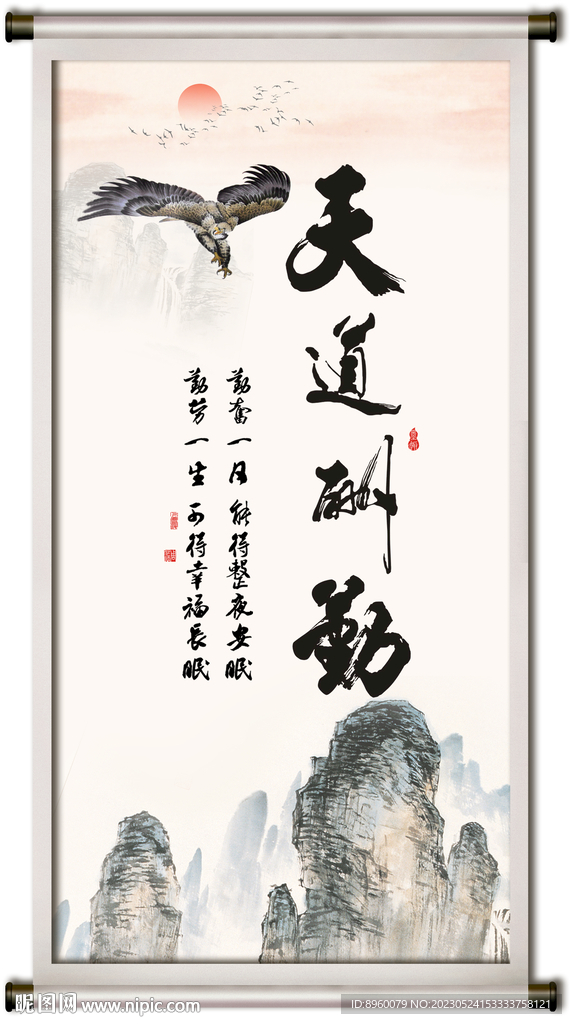 天道酬勤
勤奋一日 能得整夜安眠
勤劳一生 可得幸福长眠
昵图网 www.nipic.com
ID:8960079 NO:20230524153333758121